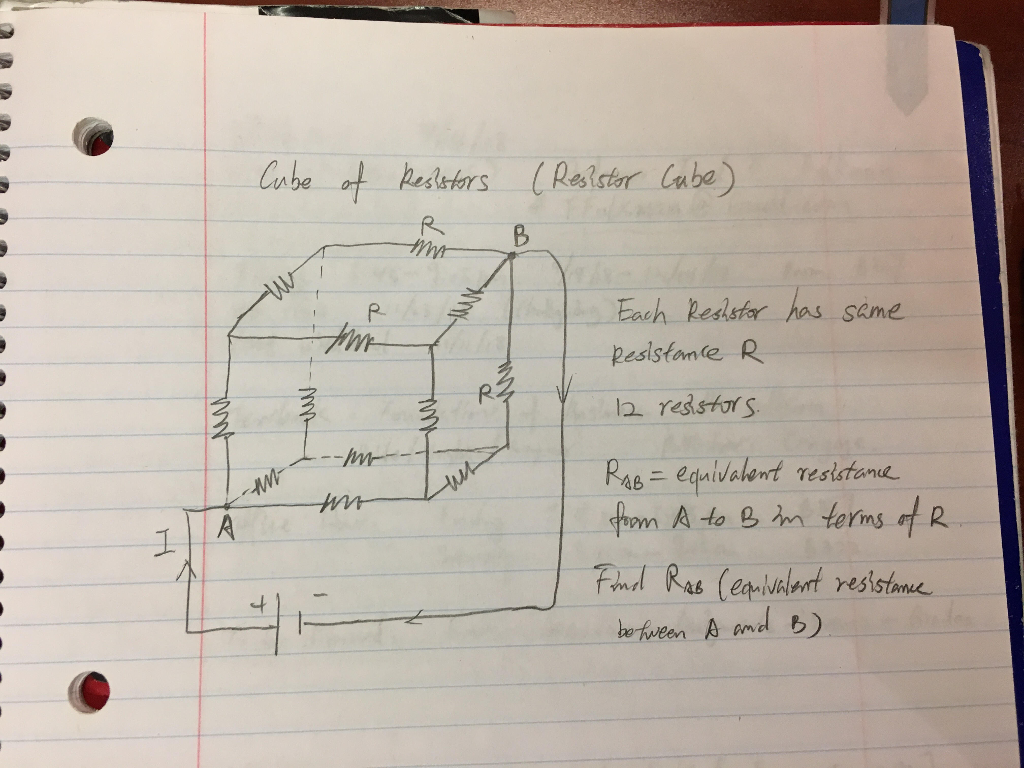 Cube of Resistors (Resistor Cube)
R
B
R
Each Resistor has same
Resistance R
R
12 resistors.
RAB = equivalent resistance
from A to B in terms of R
A
I
Find RAB (equivalent resistance
+ -
between A and B).